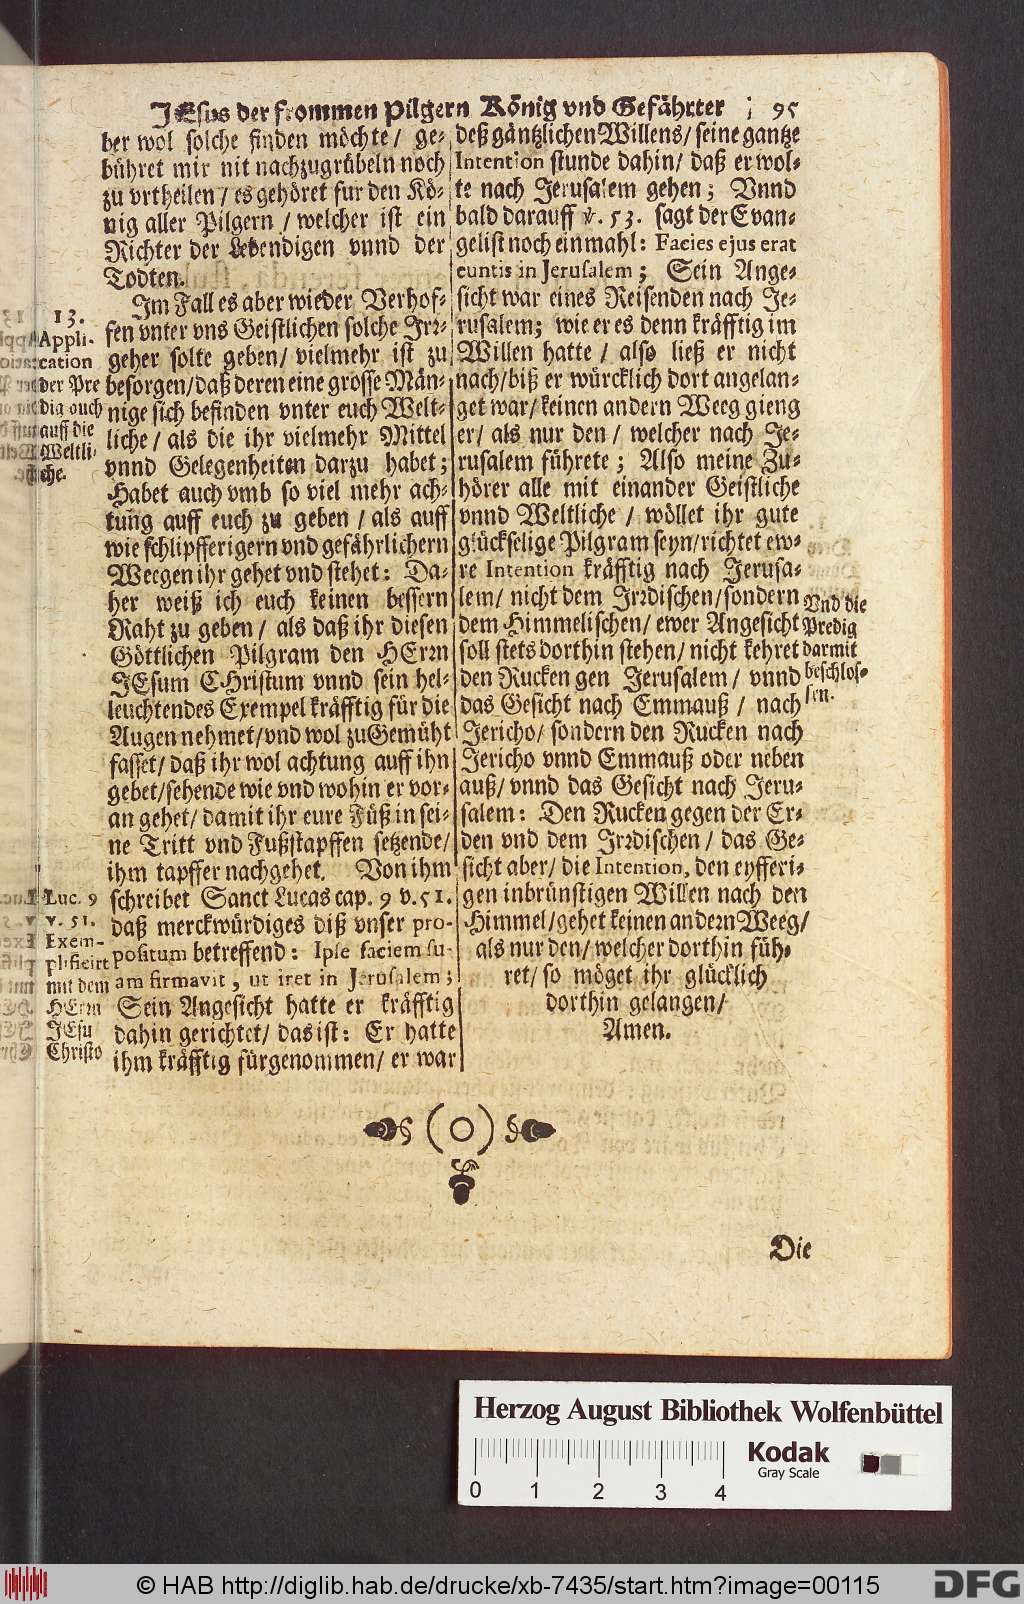 JEsus der frommen Pilgern König vnd Gefährter 95
ber wol solche finden möchte/ ge-
bühret mir nit nachzugrübeln noch
zu vrtheilen/ es gehöret für den Kö-
nig aller Pilgern/ welcher ist ein
Richter der Lebendigen vnnd der
Todten.
Im Fall es aber wieder Verhof-
fen vnter vns Geistlichen solche Irr-
geher solte geben/ vielmehr ist zu
besorgen/ daß deren eine grosse Män-
nige sich befinden vnter euch Welt-
liche/ als die ihr vielmehr Mittel
vnnd Gelegenheiten darzu habet;
Habet auch vmb so viel mehr ach-
tung auff euch zu geben/ als auff
wie schlipfferigern vnd gefährlichern
Weegen ihr gehet vnd stehet: Da-
her weiß ich euch keinen bessern
Raht zu geben/ als daß ihr diesen
Göttlichen Pilgram den HErrn
JEsum CHristum vnnd sein hel-
leuchtendes Exempel kräfftig für die
Augen nehmet/ vnd wol zu Gemüht
fasset/ daß ihr wol achtung auff ihn
gebet/ sehende wie vnd wohin er vor-
an gehet/ damit ihr eure Füß in sei-
ne Tritt vnd Fußstapffen setzende/
ihm tapffer nachgehet. Von ihm
schreibet Sanct Lucas cap. 9 v. 51.
daß merckwürdiges diß vnser pro-
positum betreffend: Ipse faciem su-
am firmavit, ut iret in Jerusalem;
Sein Angesicht hatte er kräfftig
dahin gerichtet/ das ist: Er hatte
ihm kräfftig fürgenommen/ er war
13.
Appli-
cation
der Pre
dig auch
auff die
Weltli-
che.
Luc. 9
v. 51.
Exem-
plificirt
mit dem
HErrn
JEsu
Christo
deß gäntzlichen Willens/ seine gantze
Intention stunde dahin/ daß er wol-
te nach Jerusalem gehen; Vnnd
bald darauff v. 53. sagt der Evan-
gelist noch einmahl: Facies ejus erat
euntis in Jerusalem; Sein Ange-
sicht war eines Reisenden nach Je-
rusalem; wie er es denn kräfftig im
Willen hatte/ also ließ er nicht
nach/ biß er würcklich dort angelan-
get war/ keinen andern Weeg gieng
er/ als nur den/ welcher nach Je-
rusalem führete; Also meine Zu-
hörer alle mit einander Geistliche
vnnd Weltliche/ wöllet ihr gute
glückselige Pilgram seyn/ richtet ew-
re Intention kräfftig nach Jerusa-
lem/ nicht dem Irrdischen/ sondern
dem Himmelischen/ ewer Angesicht
soll stets dorthin stehen/ nicht kehret
den Rucken gen Jerusalem/ vnnd
das Gesicht nach Emmauß/ nach
Jericho/ sondern den Rucken nach
Jericho vnnd Emmauß oder neben
auß/ vnnd das Gesicht nach Jeru-
salem: Den Rucken gegen der Er-
den vnd dem Irrdischen/ das Ge-
sicht aber/ die Intention, den eyfferi-
gen inbrünstigen Willen nach den
Himmel/ gehet keinen andern Weeg/
als nur den/ welcher dorthin füh-
ret/ so möget ihr glücklich
dorthin gelangen/
Amen.
Vnd die
Predig
darmit
beschlos-
sen.
Die
Herzog August Bibliothek Wolfenbüttel
Kodak
Gray Scale
0 1 2 3 4
© HAB http://diglib.hab.de/drucke/xb-7435/start.htm?image=00115
DFG